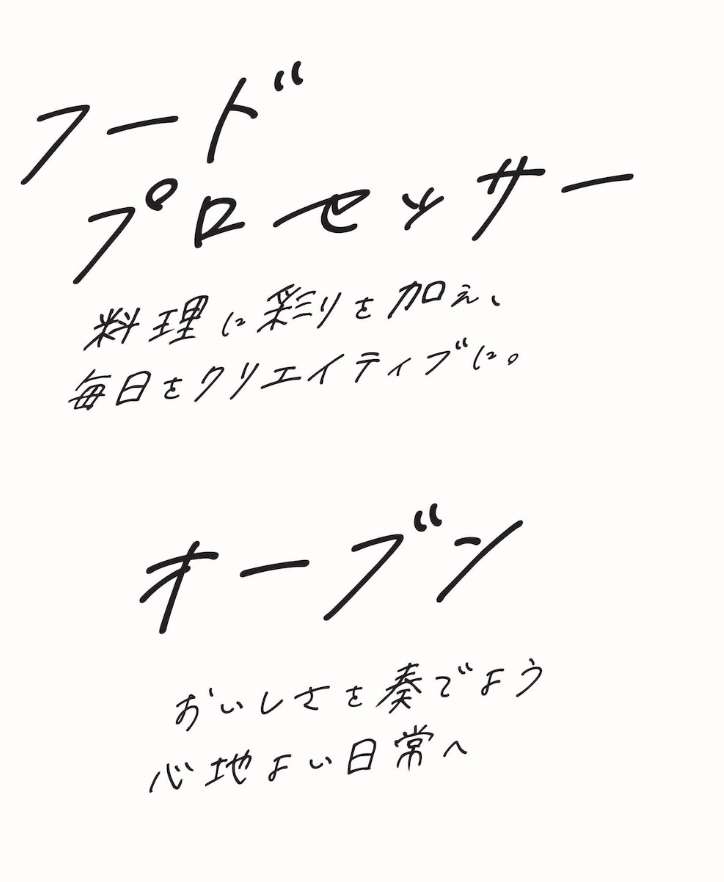 フード
プロセッサー
料理に彩りを加え、
毎日をクリエイティブに。
オーブン
おいしさを奏でよう
心地よい日常へ